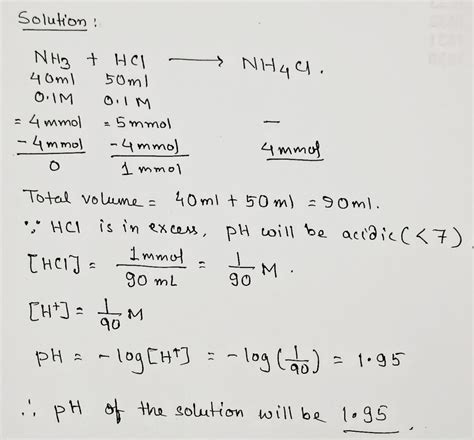 Solution :
NH3 + HCl ⟶ NH4Cl.
40ml 50ml
0.1M 0.1M
= 4mmol = 5mmol —
- 4mmol - 4mmol 4mmol
0 1 mmol
Total volume = 40ml + 50ml = 90ml.
∵ HCl is in excess, pH will be acidic (<7)
[HCl] = 1mmol/90 mL = 1/90 M.
[H+] = 1/90 M
pH = - log[H+] = - log(1/90) = 1.95
∴ pH of the solution will be 1.95.